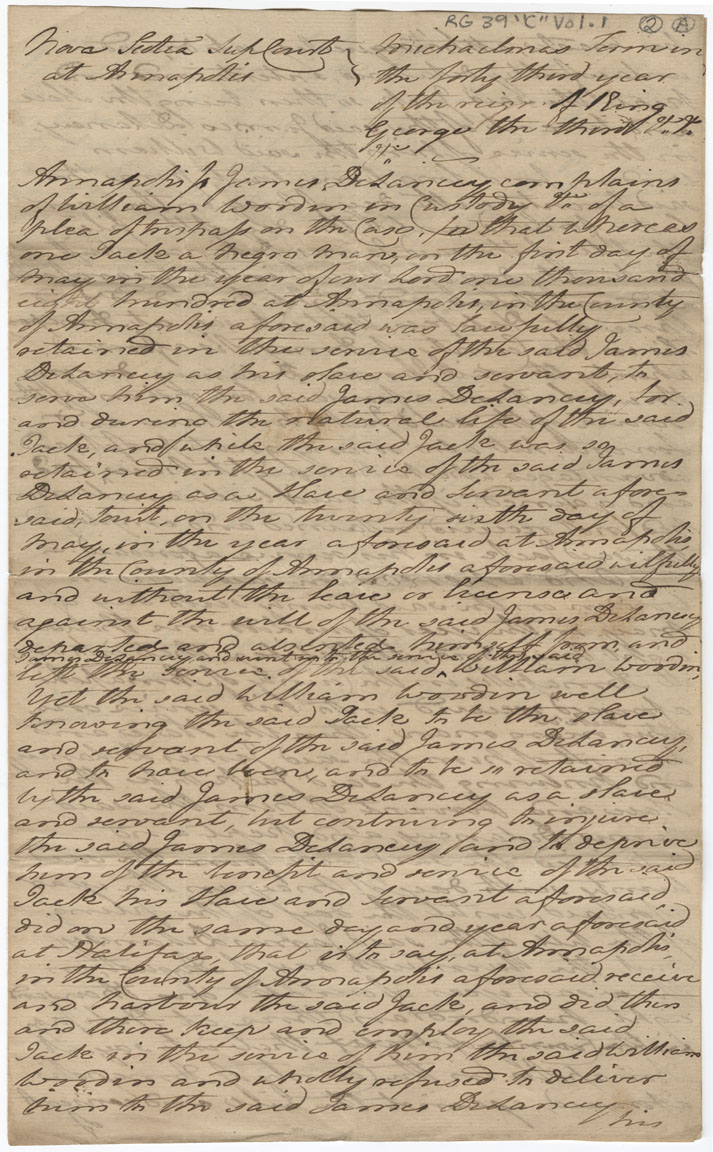 RG 39 "C" Vol. 1 2 A
Nova Scotia Sup Court } Michaelmas Term in
at Annapolis the forty third year
of the reign of King
George the third &c. &c.
&c
Annapolis ss James DeLancey complains
of William Woodin in Custody &c. of a
plea of trespass on the Case, for that whereas
one Jack a Negro man, on the first day of
May in the year of our Lord one thousand
eight hundred at Annapolis, in the County
of Annapolis aforesaid was lawfully
retained in the service of the said James
DeLancey as his slave and servant, to
serve him the said James DeLancey, for
and during the natural life of the said
Jack, and while the said Jack was so
retained in the service of the said James
DeLancey as a slave and servant afore-
said, towit, on the twenty sixth day of
May, in the year aforesaid at Annapolis
in the County of Annapolis aforesaid wilfully
and without the leave or license and
against the will of the said James DeLancey
departed and absented himself from and
James DeLancey and went into the service of the said
left the service of the said ^ William Woodin,
Yet the said William Woodin well
knowing the said Jack to be the slave
and servant of the said James DeLancey,
and to have been, and to be so retained
by the said James DeLancey as a slave
and servant, but contriving to injure
the said James DeLancey, and to deprive
him of the benefit and service of the said
Jack his slave and servant aforesaid,
did on the same day and year aforesaid
at Halifax, that is to say, at Annapolis,
in the County of Annapolis aforesaid receive
and harbour the said Jack, and did then
and there keep and employ the said
Jack in the service of him the said William
Woodin and wholly refused to deliver
him to the said James DeLancey
his